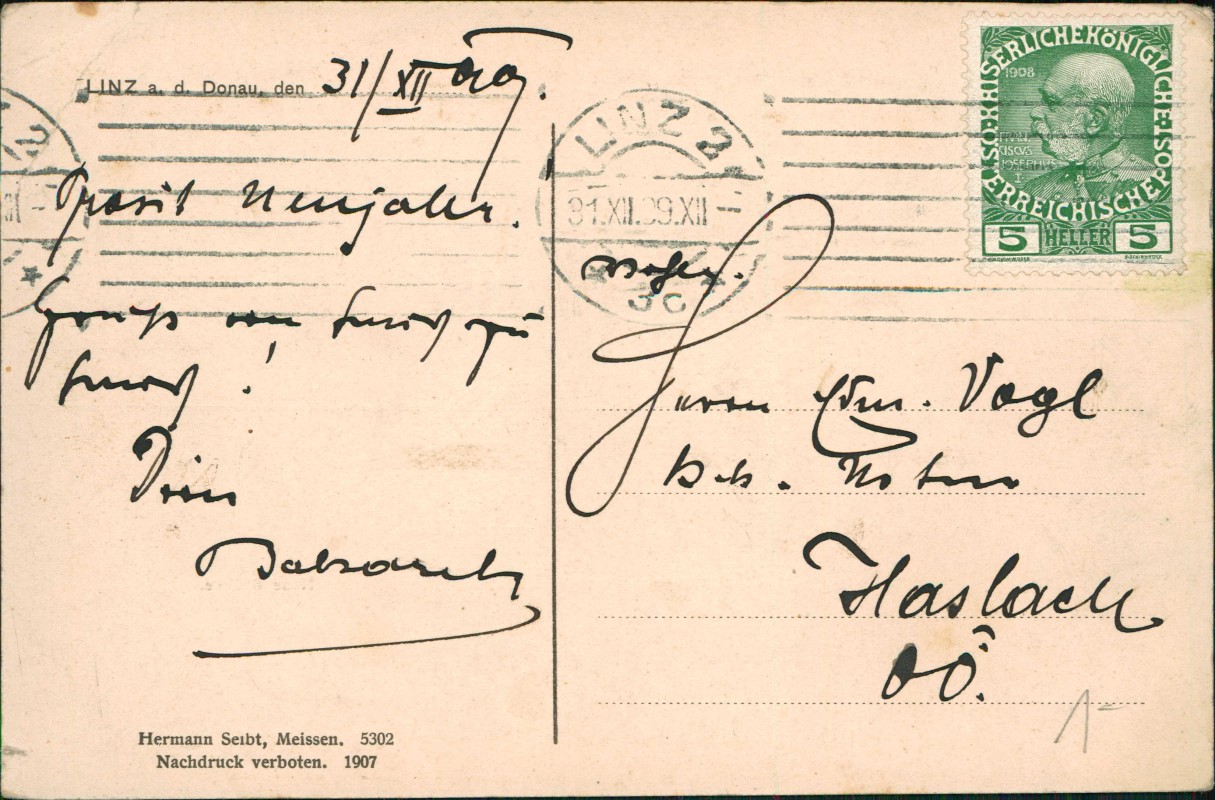 LINZ a. d. Donau, den 31/XII 09.
Prosit Neujahr.
Gruß von Haus zu
Haus!
Dein
LINZ 2
31.XII.09.XII
3c
KAISERLICHE KÖNIGLICHE ÖSTERREICHISCHE POST
1908
FRAN
CISCVS
IOSEPHVS
I
5 HELLER 5
Wohlg.
Herrn Edm. Vogl
k.k. Notar
Haslach
OÖ.
Hermann Seibt, Meissen. 5302
Nachdruck verboten. 1907